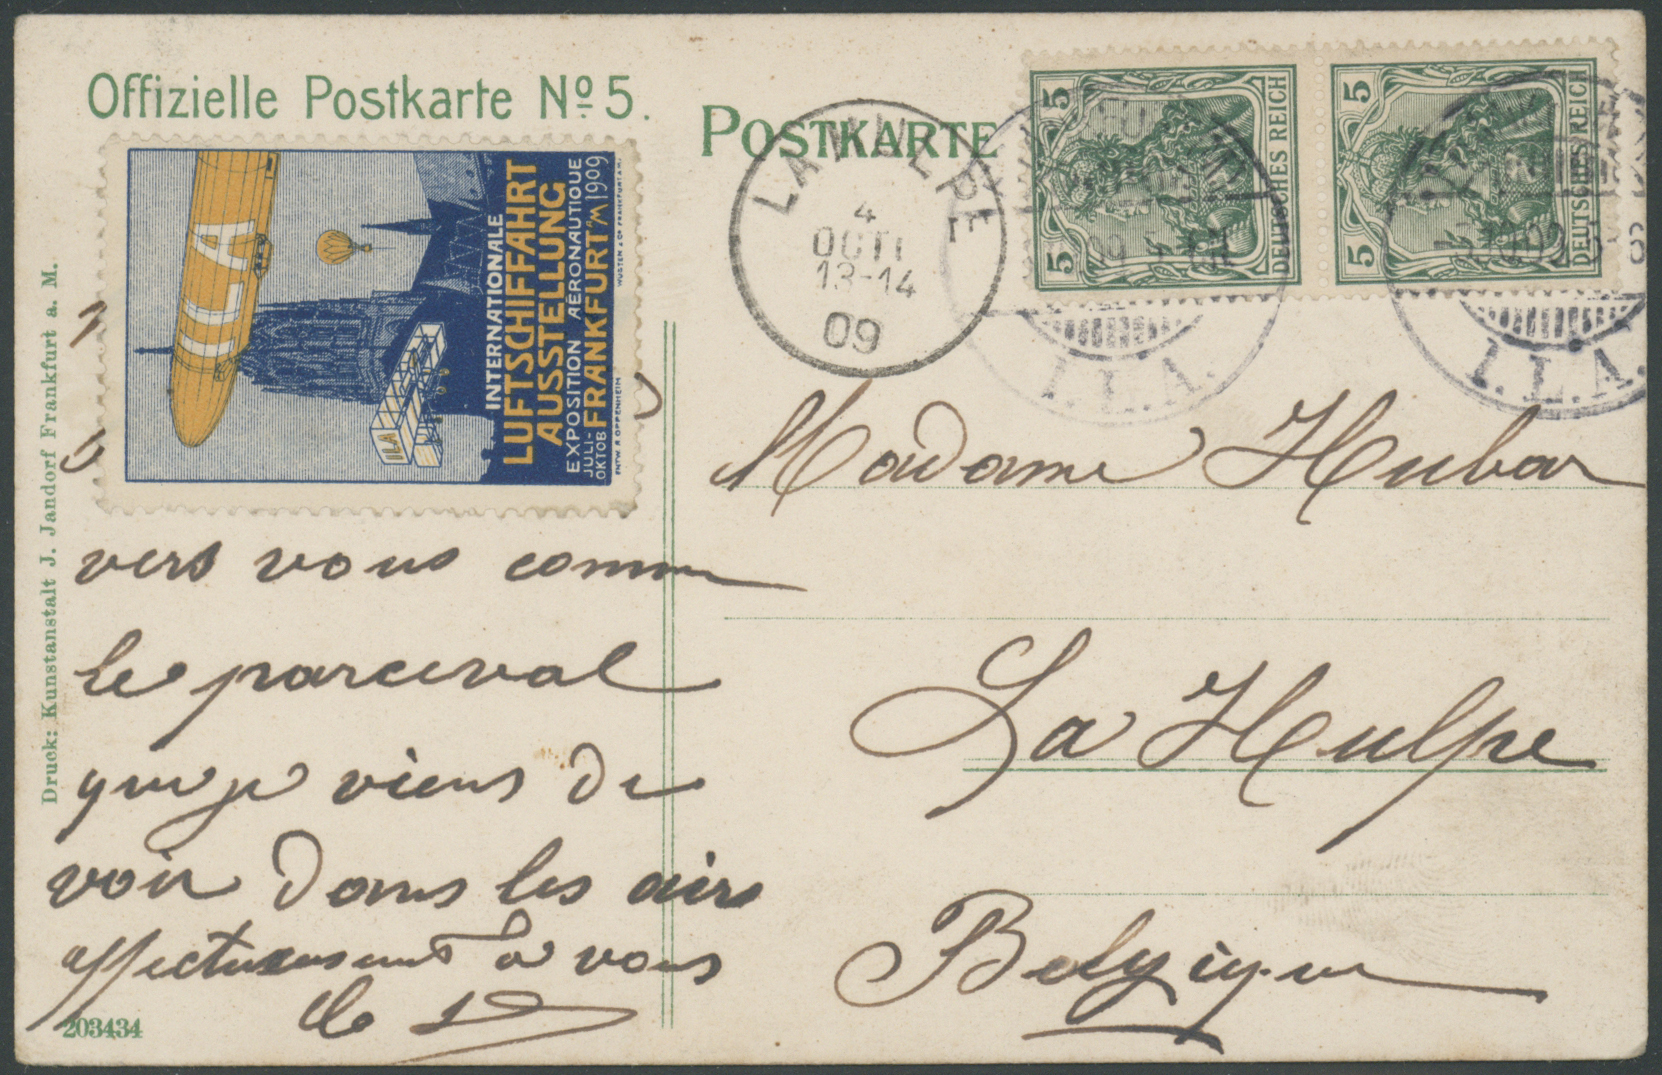 Offizielle Postkarte Nº 5.
POSTKARTE
INTERNATIONALE
LUFTSCHIFFAHRT
AUSSTELLUNG
EXPOSITION AÉRONAUTIQUE
JULI-
OKTOB
FRANKFURT a/M 1909
ENTW. R. OPPENHEIM
WÜSTEN & Co FRANKFURT A. M.
ILA
ILA
LA HULPE
4
OCTI
13-14
09
5
5
DEUTSCHES REICH
5
5
DEUTSCHES REICH
I.L.A.
I.L.A.
Druck: Kunstanstalt J. Jandorf Frankfurt a. M.
vers vous comme
le parceval
que je viens de
voir dans les airs
affectueusement à vous
203434
Madame Hubar
La Hulpe
Belgique